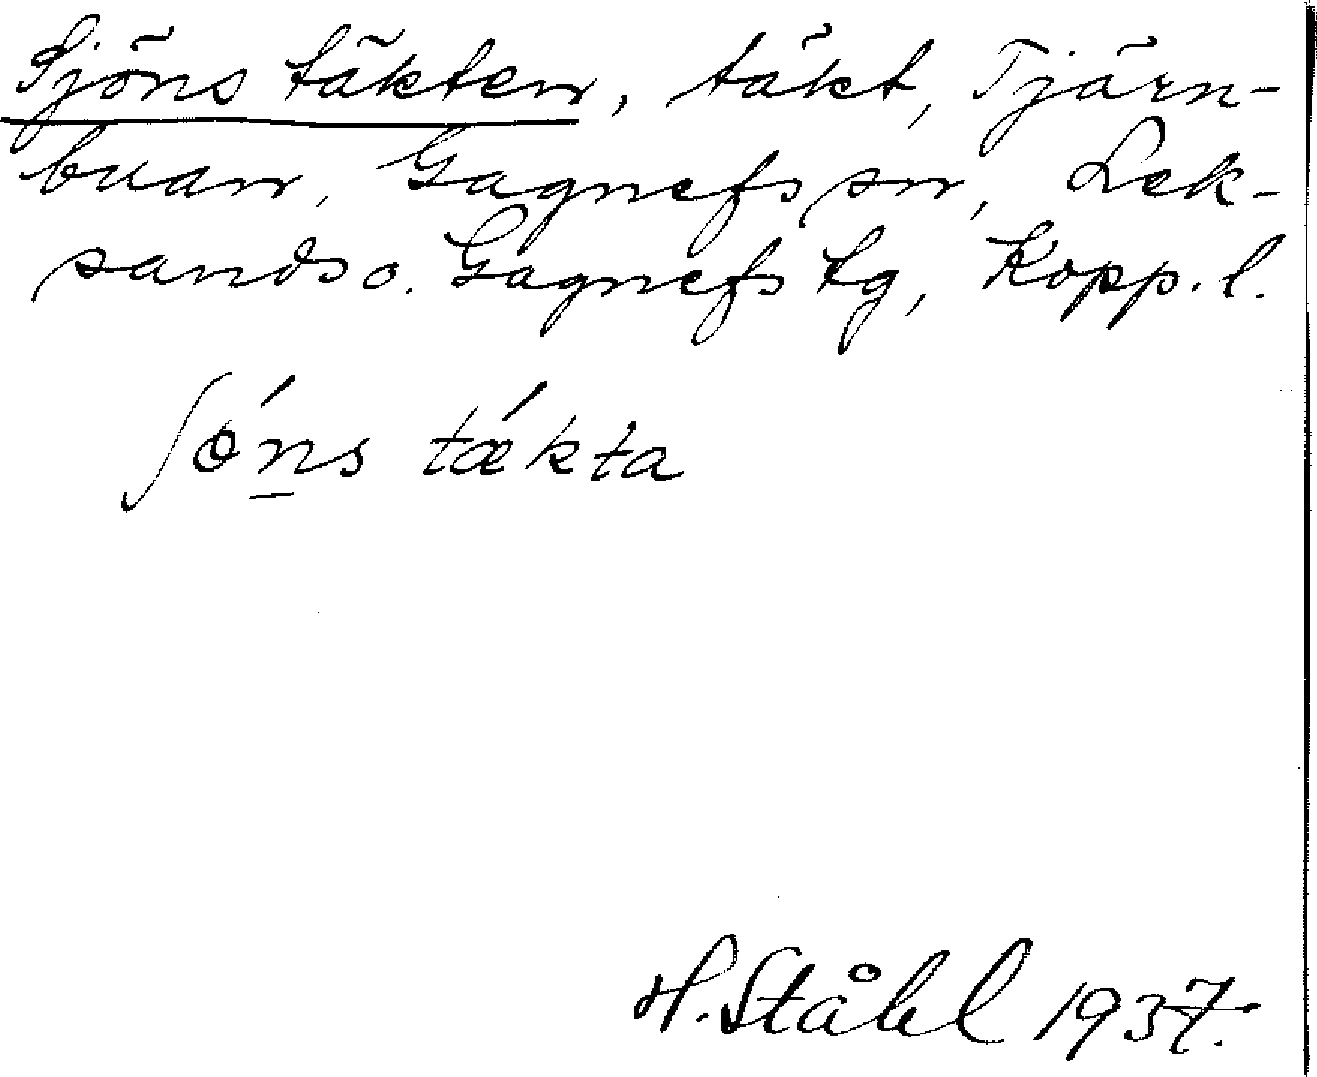 Sjöns täkten, täkt, Tjärn-
buan, Gagnefs sn, Lek-
sands o. Gagnefs tg, Kopp. l.
ʃǿn̲s tǽkta
H. Ståhl 1937.